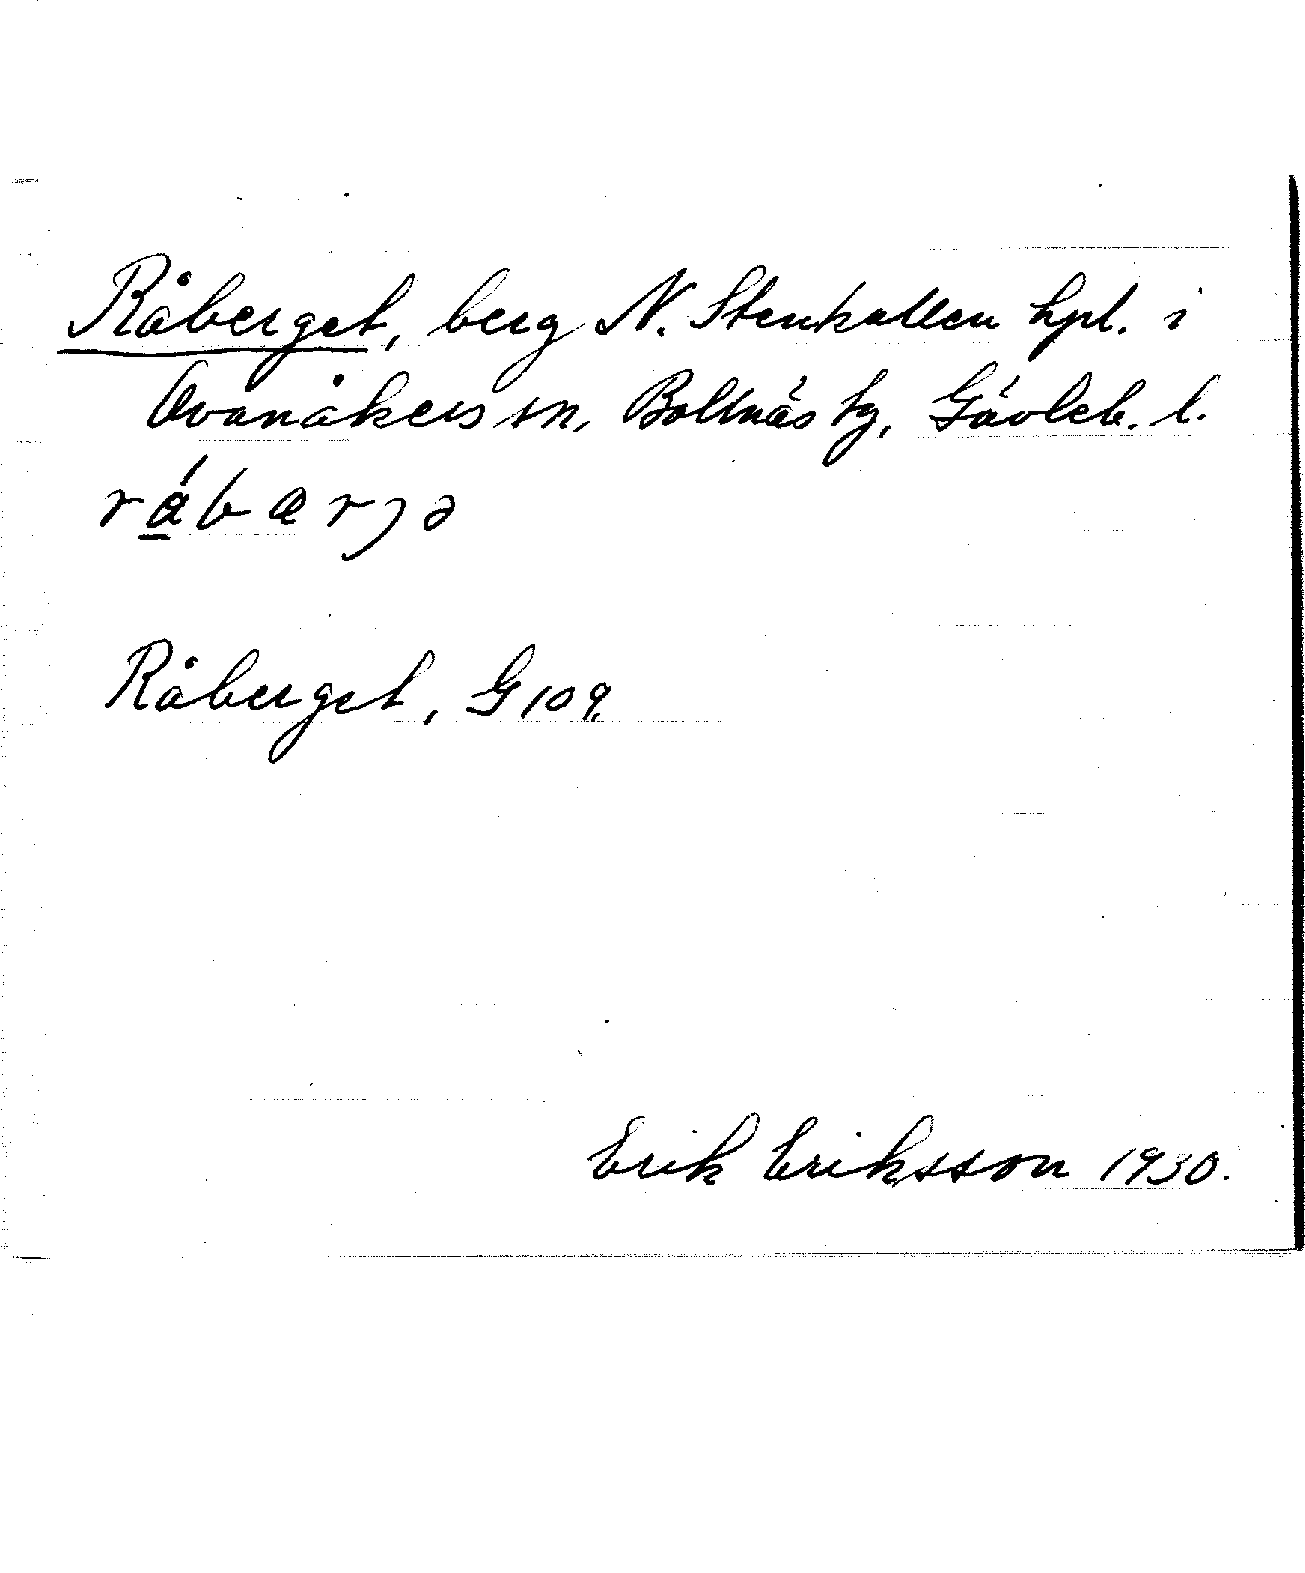 Råberget, berg N. Stenkullen hpl. i
Ovanåkers sn, Bollnäs tg, Gävleb. l.
råbærjə
Råberget, G 109.
Erik Eriksson 1930.